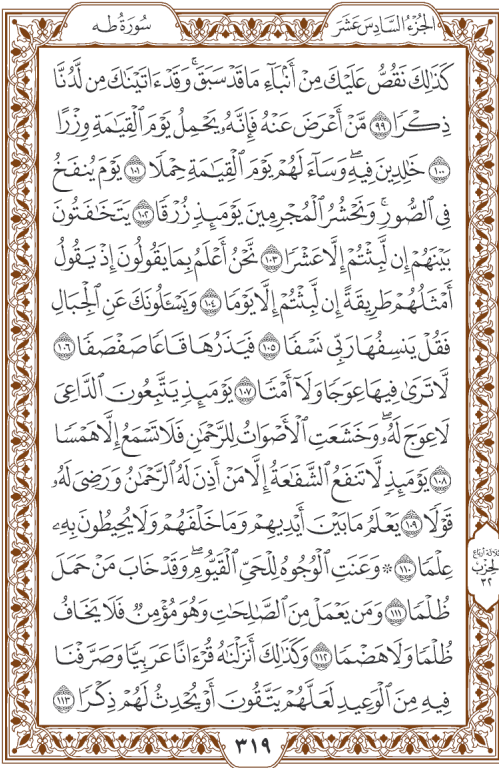 الجزء السادس عشر
سورة طه
كَذَٰلِكَ نَقُصُّ عَلَيْكَ مِنْ أَنۢبَآءِ مَا قَدْ سَبَقَۚ وَقَدْ ءَاتَيْنَٰكَ مِن لَّدُنَّا
ذِكْرًا ٩٩ مَّنْ أَعْرَضَ عَنْهُ فَإِنَّهُۥ يَحْمِلُ يَوْمَ ٱلْقِيَٰمَةِ وِزْرًا
١٠٠ خَٰلِدِينَ فِيهِۖ وَسَآءَ لَهُمْ يَوْمَ ٱلْقِيَٰمَةِ حِمْلًا ١٠١ يَوْمَ يُنفَخُ
فِى ٱلصُّورِۚ وَنَحْشُرُ ٱلْمُجْرِمِينَ يَوْمَئِذٍ زُرْقًا ١٠٢ يَتَخَٰفَتُونَ
بَيْنَهُمْ إِن لَّبِثْتُمْ إِلَّا عَشْرًا ١٠٣ نَّحْنُ أَعْلَمُ بِمَا يَقُولُونَ إِذْ يَقُولُ
أَمْثَلُهُمْ طَرِيقَةً إِن لَّبِثْتُمْ إِلَّا يَوْمًا ١٠٤ وَيَسْـَٔلُونَكَ عَنِ ٱلْجِبَالِ
فَقُلْ يَنسِفُهَا رَبِّى نَسْفًا ١٠٥ فَيَذَرُهَا قَاعًا صَفْصَفًا ١٠٦
لَّا تَرَىٰ فِيهَا عِوَجًا وَلَآ أَمْتًا ١٠٧ يَوْمَئِذٍ يَتَّبِعُونَ ٱلدَّاعِىَ
لَا عِوَجَ لَهُۥۖ وَخَشَعَتِ ٱلْأَصْوَاتُ لِلرَّحْمَٰنِ فَلَا تَسْمَعُ إِلَّا هَمْسًا
١٠٨ يَوْمَئِذٍ لَّا تَنفَعُ ٱلشَّفَٰعَةُ إِلَّا مَنْ أَذِنَ لَهُ ٱلرَّحْمَٰنُ وَرَضِىَ لَهُۥ
قَوْلًا ١٠٩ يَعْلَمُ مَا بَيْنَ أَيْدِيهِمْ وَمَا خَلْفَهُمْ وَلَا يُحِيطُونَ بِهِۦ
عِلْمًا ١١٠ ۞ وَعَنَتِ ٱلْوُجُوهُ لِلْحَىِّ ٱلْقَيُّومِۖ وَقَدْ خَابَ مَنْ حَمَلَ
ظُلْمًا ١١١ وَمَن يَعْمَلْ مِنَ ٱلصَّٰلِحَٰتِ وَهُوَ مُؤْمِنٌ فَلَا يَخَافُ
ظُلْمًا وَلَا هَضْمًا ١١٢ وَكَذَٰلِكَ أَنزَلْنَٰهُ قُرْءَانًا عَرَبِيًّا وَصَرَّفْنَا
فِيهِ مِنَ ٱلْوَعِيدِ لَعَلَّهُمْ يَتَّقُونَ أَوْ يُحْدِثُ لَهُمْ ذِكْرًا ١١٣
ثلاثة أرباع
الحزب
٣٢
٣١٩